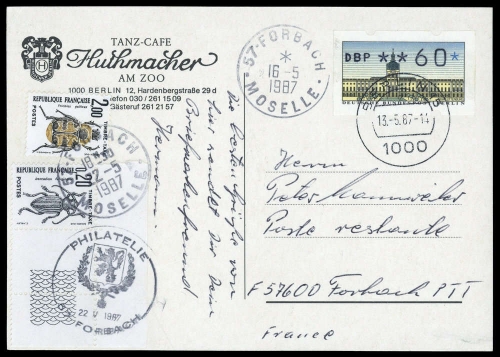 TANZ-CAFE
Huthmacher
AM ZOO
1000 BERLIN 12, Hardenbergstraße 29 d
elefon 030 / 261 15 09
Gästeruf 261 21 57
57-FORBACH
*
16-5
1987
MOSELLE
DBP *60*
13.-5.87-14
1000
REPUBLIQUE FRANÇAISE
2,00
TIMBRE-TAXE
POSTES
57-FORBACH
1987
MOSELLE
REPUBLIQUE FRANÇAISE
0,20
TIMBRE-TAXE
POSTES
PHILATELIE
22 V 1987
57 FORBACH
Die besten Grüße von
hier sendet Dir Dein
Briefmarkenfreund
Hermann.
Herrn
Peter Mannweiler
Poste restante
F 57600 Forbach PTT
France